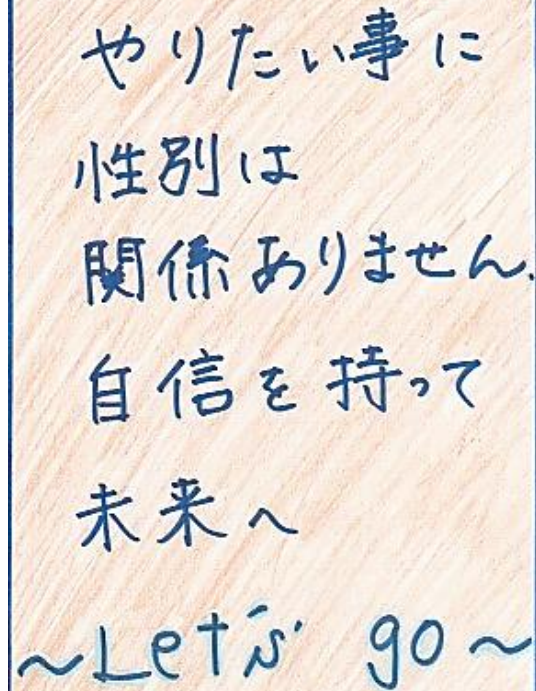 やりたい事に
性別は
関係ありません.
自信を持って
未来へ
~Let's go~